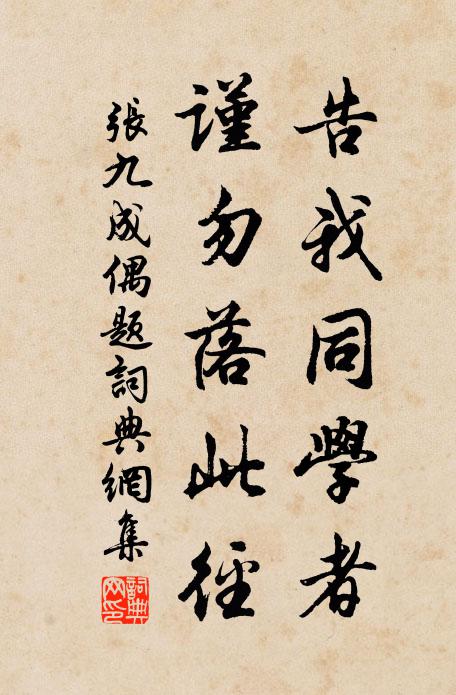 告我同學者
謹勿落此徑
張九成偶題詞典網集
詞典
网印